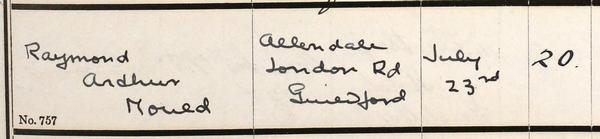 Raymond
Arthur
Mould
No. 757
Allendale
London Rd
Guildford
July
23rd
20.